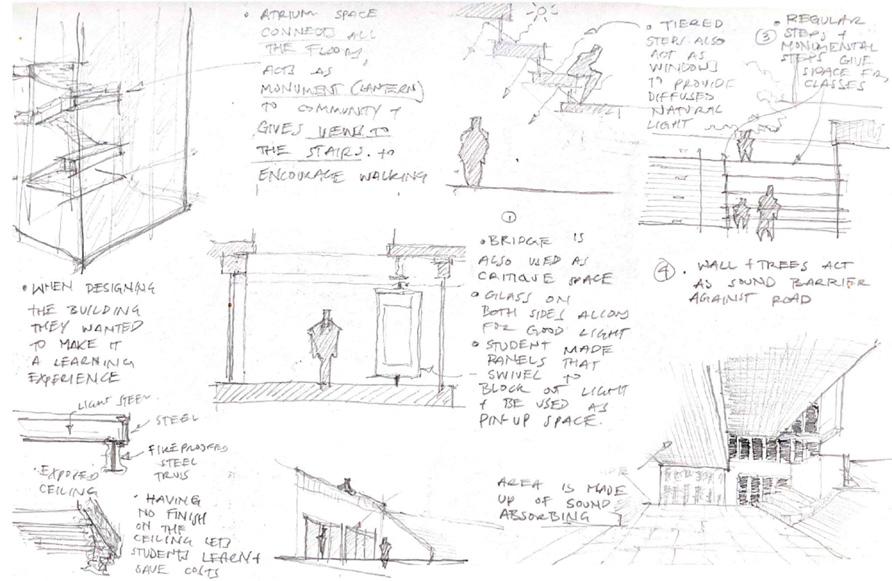 • ATRIUM SPACE
CONNECTS ALL
THE FLOORS,
ACTS AS
MONUMENT (LANTERN)
TO COMMUNITY +
GIVES VIEWS TO
THE STAIRS. to
ENCOURAGE WALKING
• TIERED
STEPS ALSO
ACT AS
WINDOWS
TO PROVIDE
DIFFUSED
NATURAL
LIGHT
③ • REGULAR
STEPS +
MONUMENTAL
STEPS GIVE
SPACE FOR
CLASSES
①
• BRIDGE IS
ALSO USED AS
CRITIQUE SPACE
• GLASS ON
BOTH SIDES ALLOW
FOR GOOD LIGHT
• STUDENT MADE
PANELS THAT
SWIVEL TO
BLOCK OUT LIGHT
+ BE USED AS
PIN-UP SPACE.
④ • WALL + TREES ACT
AS SOUND BARRIER
AGAINST ROAD
• WHEN DESIGNING
THE BUILDING
THEY WANTED
TO MAKE IT
A LEARNING
EXPERIENCE
LIGHT STEEL
STEEL
FIREPROOFED
STEEL
TRUSS
• EXPOSED
CEILING
• HAVING
NO FINISH
ON THE
CEILING LETS
STUDENTS LEARN +
SAVE COSTS
AREA IS MADE
UP OF SOUND
ABSORBING